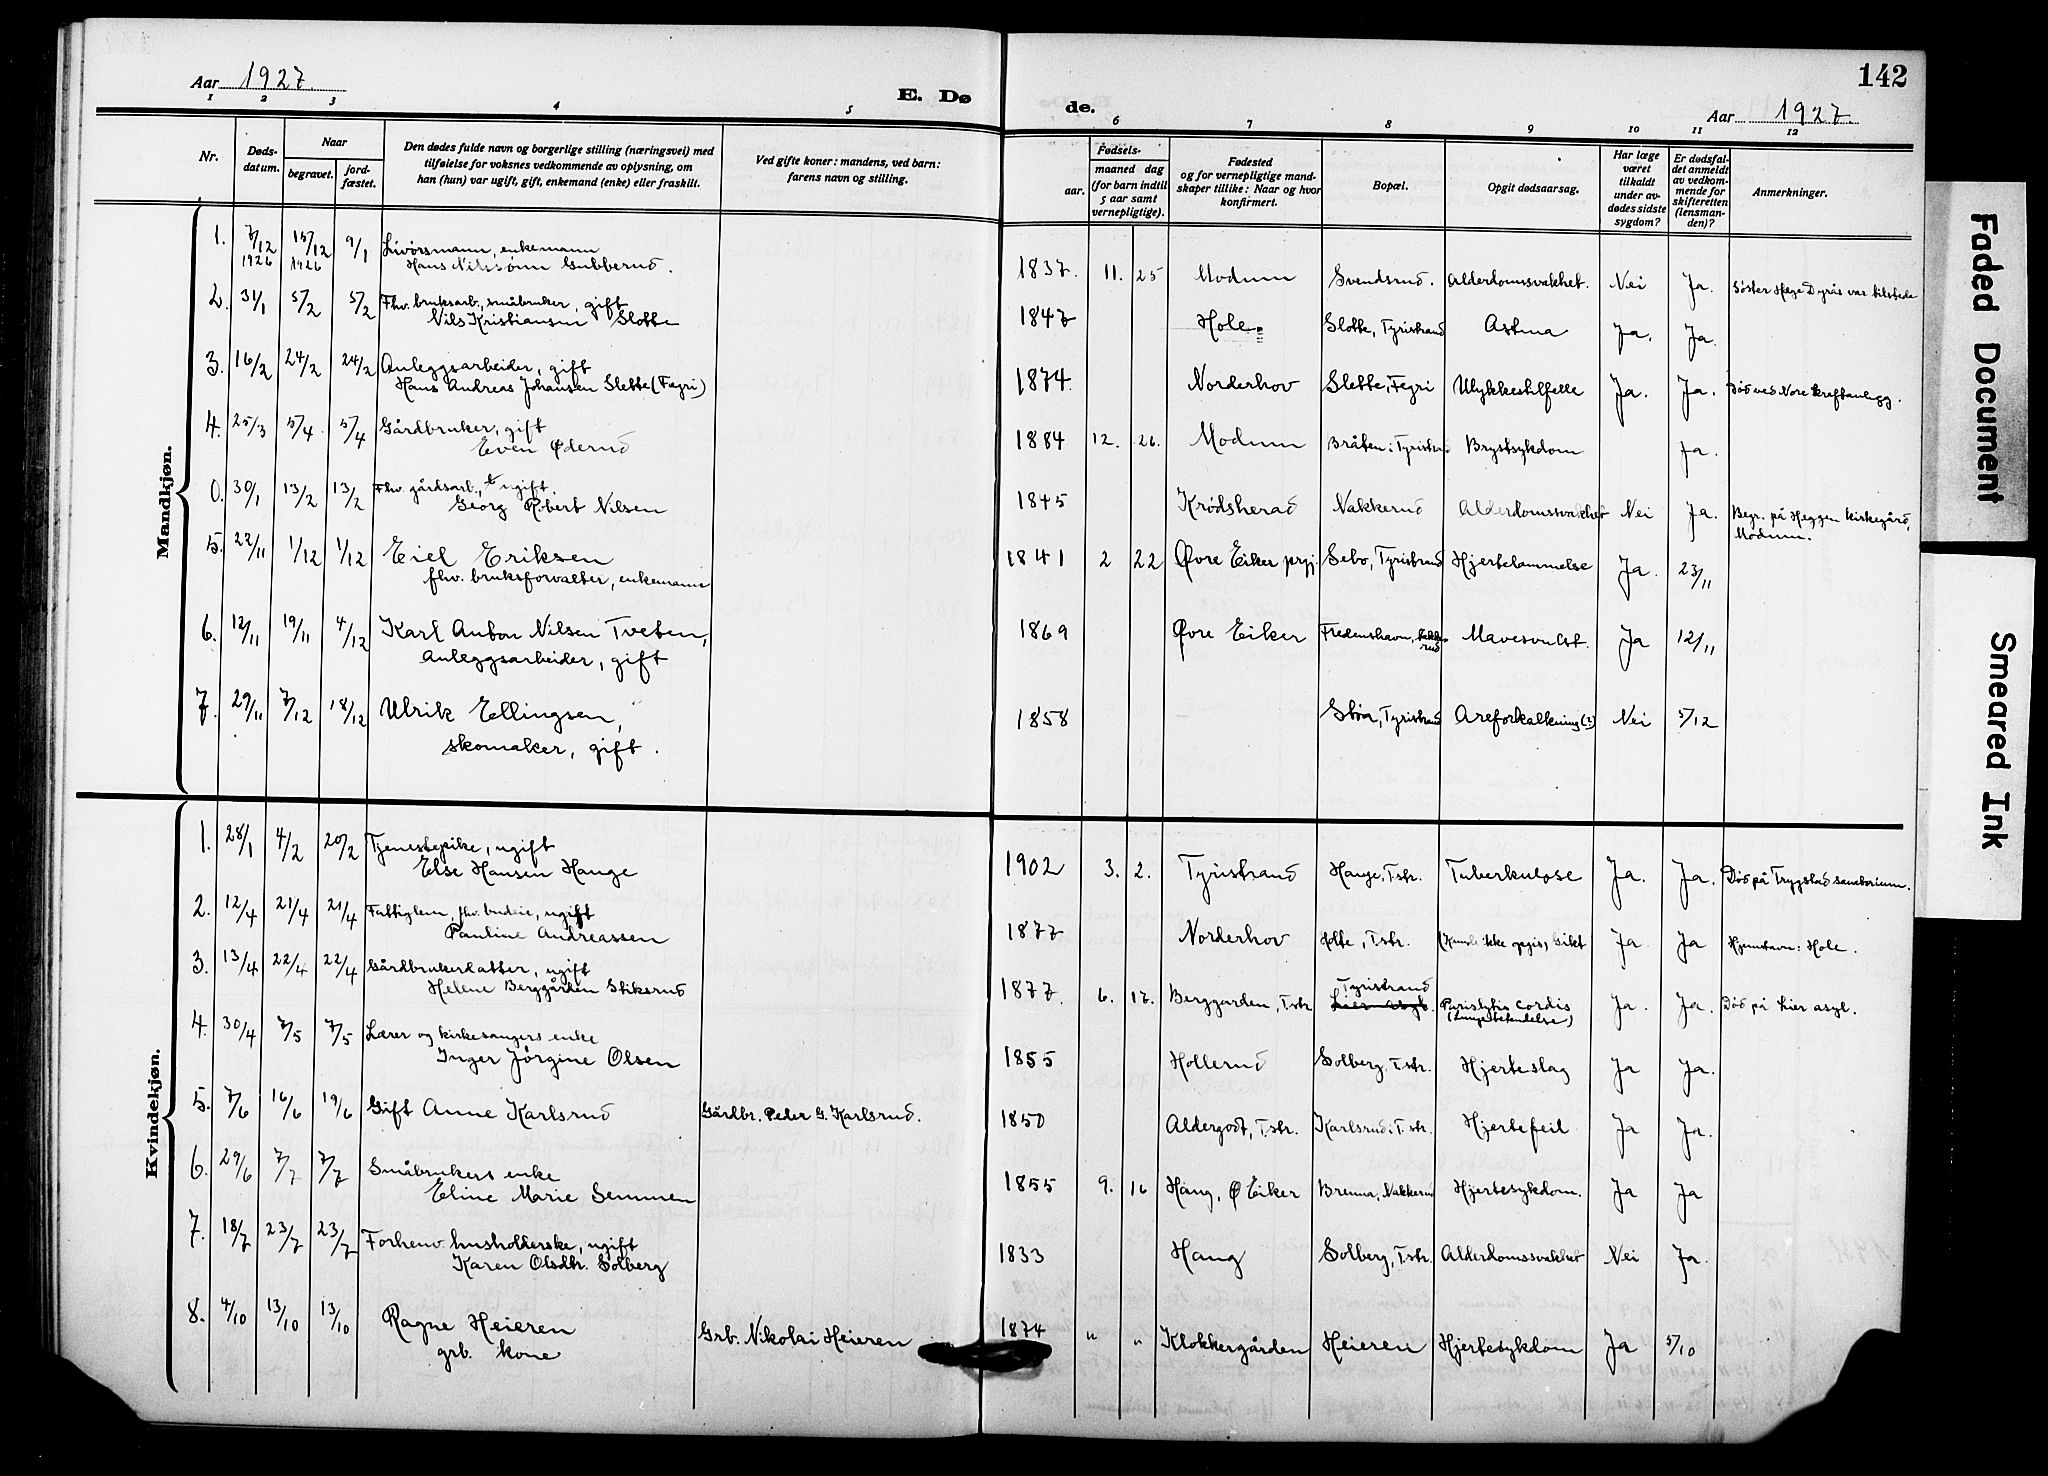 Aar 1927.
E. Dø
de.
142
Aar 1927.
1 2 3 4 5
6 7 8 9 10 11 12
Nr.
Døds-datum.
Naar
begravet.
jord-fæstet.
Den dødes fulde navn og borgerlige stilling (næringsvei) med
tilføielse for voksnes vedkommende av oplysning, om
han (hun) var ugift, gift, enkemand (enke) eller fraskilt.
Ved gifte koner: mandens, ved barn:
farens navn og stilling.
Fødsels-
aar.
maaned dag
(for barn indtil
5 aar samt
vernepligtige).
Fødested
og for vernepligtige mand-
skaper tillike: Naar og hvor
konfirmert.
Bopæl.
Opgit dødsaarsag.
Har læge
været
tilkaldt
under av-
dødes sidste
sygdom?
Er dødsfal-
det anmeldt
av vedkom-
mende for
skifteretten
(lensman-
den)?
Anmerkninger.
Mandkjøn.
1. 7/12 1926 15/12 1926 9/1 Livørsmann, enkemann
Hans Nilssønn Gubberud. 1837. 11. 25 Modum Svendsrud. Alderdomsvakhet. Nei Ja. Søster Hege Dyrås var tilstede
2. 31/1 5/2 5/2 Fhv. bruksarb., småbruker, gift
Nils Kristiansen Slotte 1847 Hole. Slotte, Tyristrand Astma Ja. Ja.
3. 16/2 24/2 24/2 Anleggsarbeider, gift
Hans Andreas Johansen Slette (Fegri) 1874. Norderhov Slette, Fegri Ulykkestilfelle Ja. Ja. Død ved Nore kraftanlegg.
4. 25/3 5/4 5/4 Gårdbruker, gift
Even Øderud 1884 12. 26. Modum Bråten i Tyristrand Brystsykdom Ja.
0. 30/1 13/2 13/2 Fhv. gårdsarb., ugift
Georg Robert Nilsen 1845 Krødsherad Nakkerud Alderdomssvakhet Nei Ja. Begr. på Heggen kirkegård,
Modum.
5. 22/11 1/12 1/12 Eiel Eriksen
fhv. bruksforvalter, enkemann 1841 2 22 Øvre Eiker prgj. Sebo, Tyristrand Hjertelammelse Ja. 23/11
6. 12/11 19/11 4/12 Karl Anton Nilsen Tveten,
Anleggsarbeider, gift 1869 Øvre Eiker Fredenshavn, Nakke-
rud Mavesvulst. Ja 12/11
7. 29/11 7/12 18/12 Ulrik Ellingsen,
skomaker, gift. 1858 Støa, Tyristrand Areforkalkning (?) Nei 5/12
Kvindekjøn.
1. 28/1 4/2 20/2 Tjenestepike, ugift
Else Hansen Hauge 1902 3. 2. Tyristrand Hauge, T.str. Tuberkulose Ja. Ja. Død på Trygstad sanatorium.
2. 12/4 21/4 21/4 Fattiglem, fhv. budeie, ugift
Pauline Andreassen 1877 Norderhov Holte, T.str. (Kunde ikke opgis) Gikt Ja. Ja Hjemstavn: Hole.
3. 13/4 22/4 22/4 Gårdbrukerdatter, ugift
Helene Berggården Stiksrud 1877. 6. 17. Berggarden, T.str Tyristrand
Lier asyl. cordis
(Lungebetendelse) Ja. Ja. Død på Lier asyl.
4. 30/4 7/5 7/5 Lærer og kirkesangers enke
Inger Jørgine Olsen 1855 Hollerud Solberg, T.str. Hjerteslag Ja Ja.
5. 7/6 16/6 19/6 Gift Anne Karlsrud Gårdbr. Peder G. Karlsrud. 1850 Aldergodt, T.str. Karlsrud i T.str. Hjertefeil Ja Ja.
6. 29/6 7/7 7/7 Småbrukers enke
Eline Marie Semmen 1855 9. 16 Haug, Ø Eiker Brenna, Nakkerud Hjertesykdom. Ja Ja
7. 18/7 23/7 23/7 Forhenv. husholderske, ugift
Karen Olsdtr. Solberg 1833 Haug Solberg, T.str. Alderdomssvakhet Nei Ja.
8. 4/10 13/10 13/10 Ragne Heieren
grb. kone Grb. Nikolai Heieren 1874 " " Klokkergården Heieren Hjertesykdom Ja 5/10
Faded Document
Smeared Ink